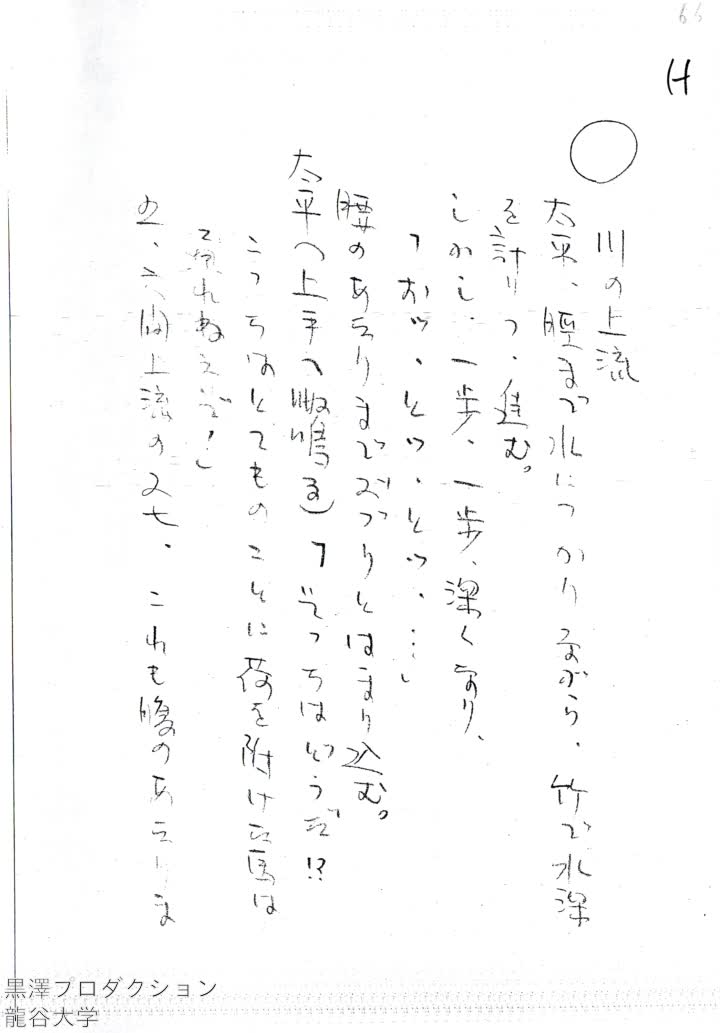 66
H
川の上流
太平、脛まで水につかりながら、竹で水深
を計りつゝ進む。
しかし、一歩、一歩、深くなり、
「おッ、とッ、とッ、…」
腰のあたりまでズブリとはまり込む。
太平へ上手へ呶鳴る)「そっちはどうだ!?
こっちはとてものことに荷を附けた馬は
れねえぞ!」
五、六間上流の又七、これも腹のあたりま
黒澤プロダクション
龍谷大学